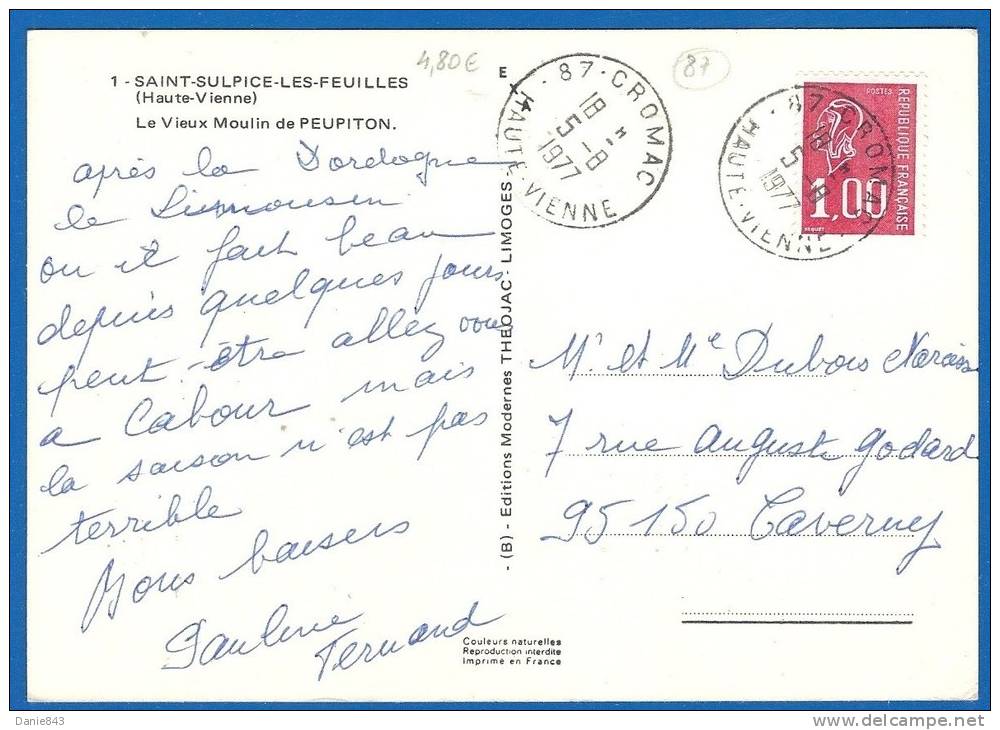 4,80€
87
1 - SAINT-SULPICE-LES-FEUILLES
(Haute-Vienne)
Le Vieux Moulin de PEUPITON.
après la Dordogne
le Limousin
ou it fait beau
depuis quelques jours
peut-être allez vous
a Cabour mais
la saison n'est pas
terrible
Bons baisers
Pauline
Fernand
- (B) - Editions Modernes THEOJAC - LIMOGES
87 · CROMAC
18 H
5 - 8
1977
HAUTE - VIENNE
87 · CROMAC
18 H
5 - 8
1977
HAUTE - VIENNE
POSTES
REPUBLIQUE FRANÇAISE
1,00
BEQUET
Mr et Me Dubois Narcisse
7 rue Auguste Godard
95150 Taverny
Couleurs naturelles
Reproduction interdite
Imprimé en France
Danie843
www.delcampe.net